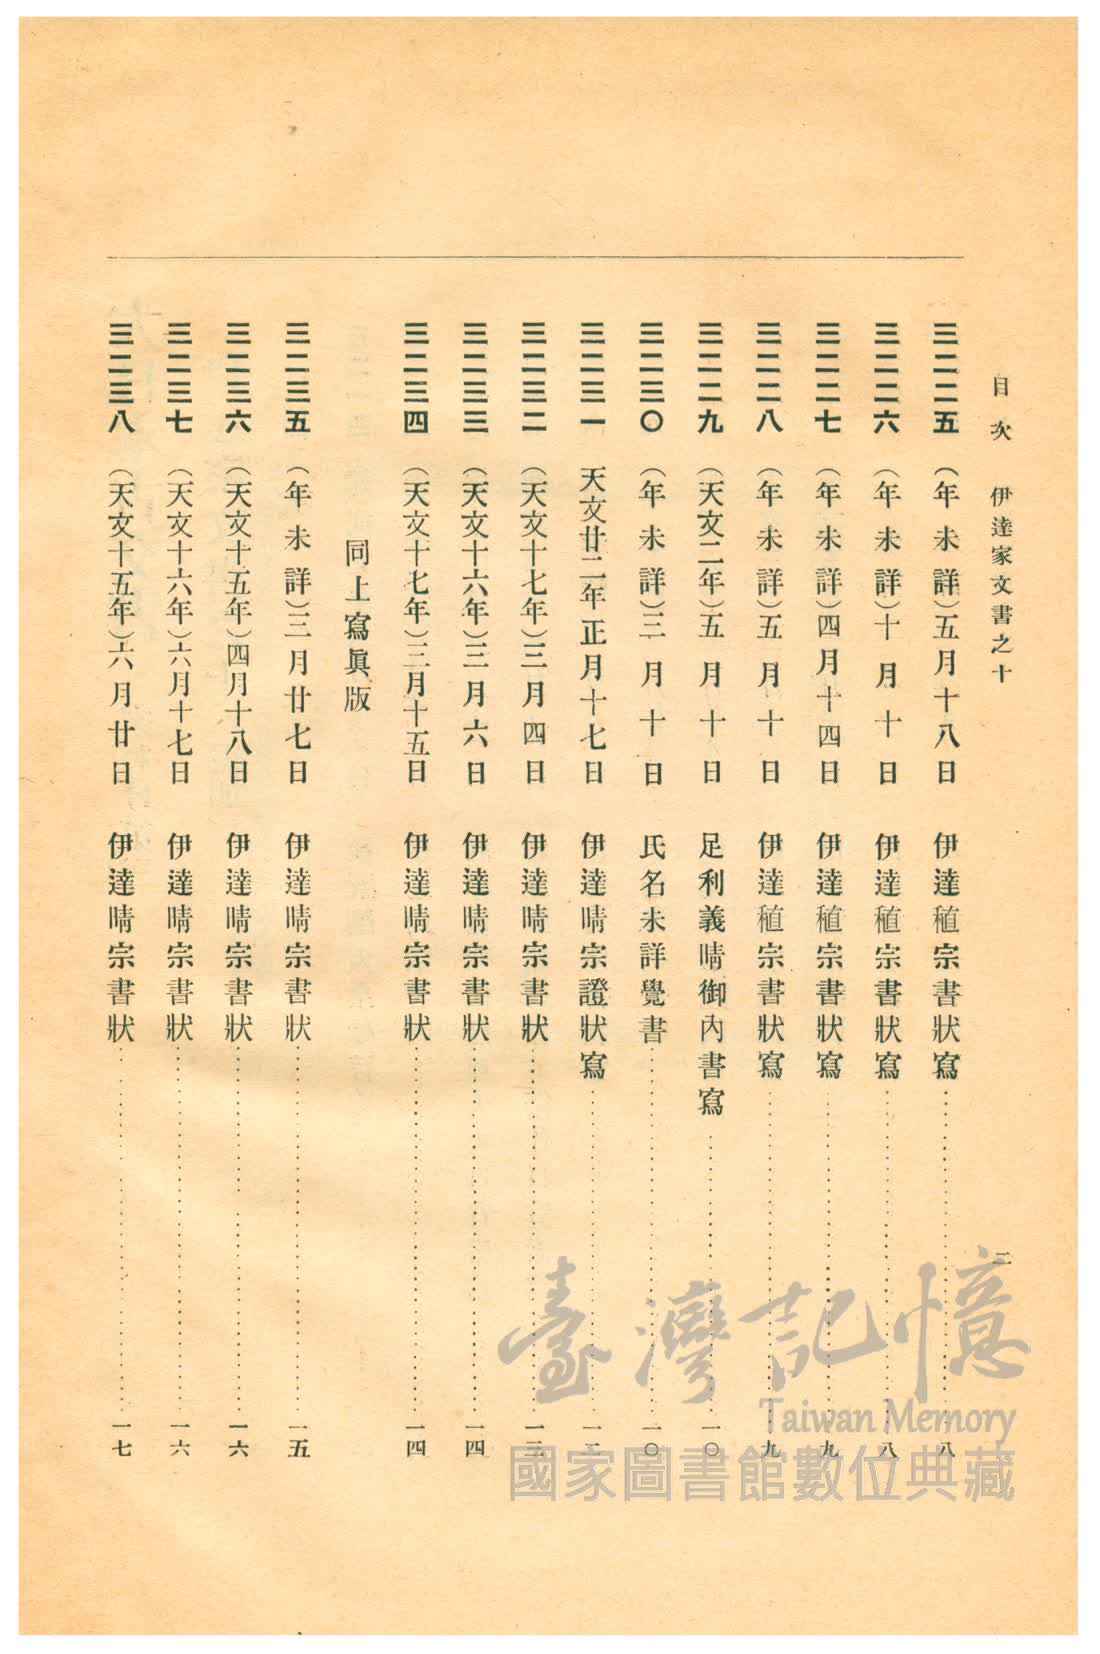 目次　伊達家文書之十　二
三二二五　（年未詳）五月十八日　伊達稙宗書狀寫………八
三二二六　（年未詳）十月十日　伊達稙宗書狀寫………八
三二二七　（年未詳）四月十四日　伊達稙宗書狀寫………九
三二二八　（年未詳）五月十日　伊達稙宗書狀寫………九
三二二九　（天文二年）五月十日　足利義晴御內書寫………一〇
三二三〇　（年未詳）三月十日　氏名未詳覺書………一〇
三二三一　天文廿二年正月十七日　伊達晴宗證狀寫………一二
三二三二　（天文十七年）三月四日　伊達晴宗書狀………一三
三二三三　（天文十六年）三月六日　伊達晴宗書狀………一四
三二三四　（天文十七年）三月十五日　伊達晴宗書狀………一四
同上寫眞版
三二三五　（年未詳）三月廿七日　伊達晴宗書狀………一五
三二三六　（天文十五年）四月十八日　伊達晴宗書狀………一六
三二三七　（天文十六年）六月十七日　伊達晴宗書狀………一六
三二三八　（天文十五年）六月廿日　伊達晴宗書狀………一七
臺灣記憶
Taiwan Memory
國家圖書館數位典藏